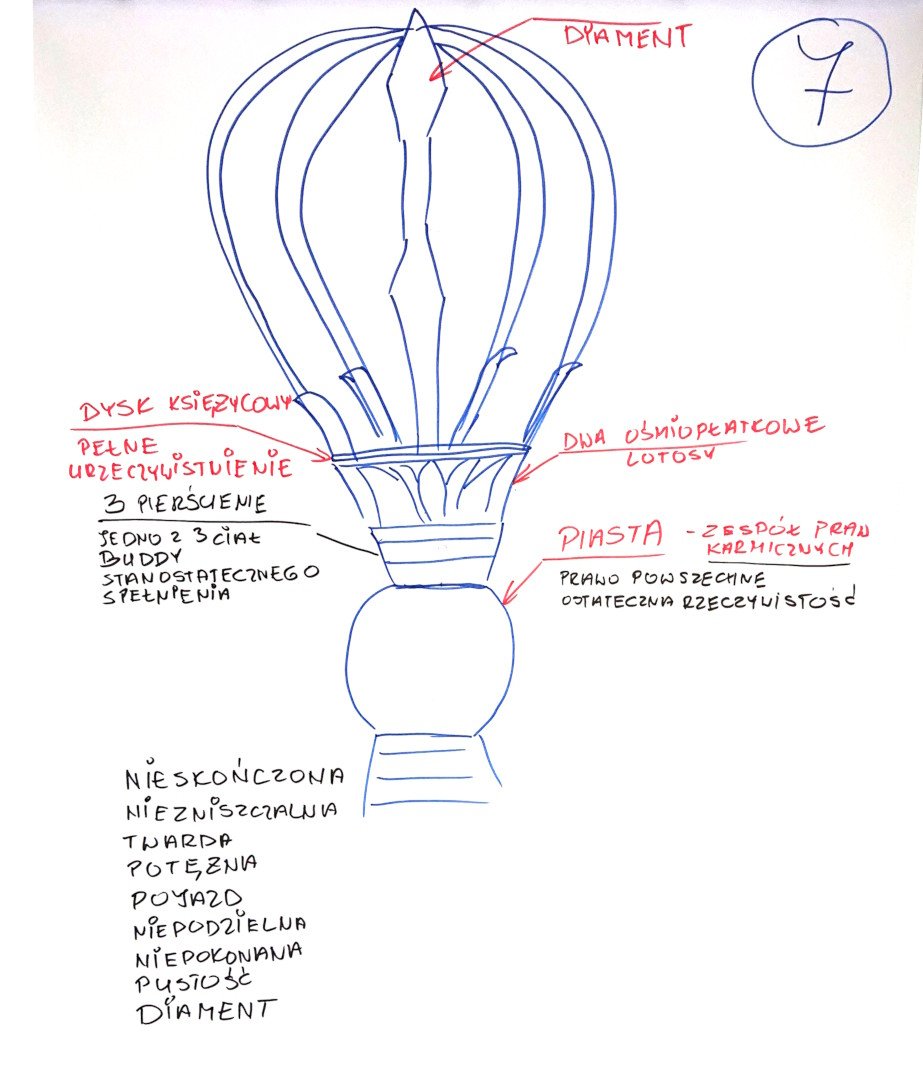 DIAMENT
7
DYSK KSIĘŻYCOWY
PEŁNE
URZECZYWISTNIENIE
DWA OŚMIOPŁATKOWE
LOTOSY
3 PIERŚCIENIE
JEDNO Z 3 CIAŁ
BUDDY
STAN OSTATECZNEGO
SPEŁNIENIA
PIASTA - ZESPÓŁ PRAW
KARMICZNYCH
PRAWO POWSZECHNE
OSTATECZNA RZECZYWISTOŚĆ
NIESKOŃCZONA
NIEZNISZCZALNA
TWARDA
POTĘŻNA
POJAZD
NIEPODZIELNA
NIEPOKONANA
PUSTOŚĆ
DIAMENT